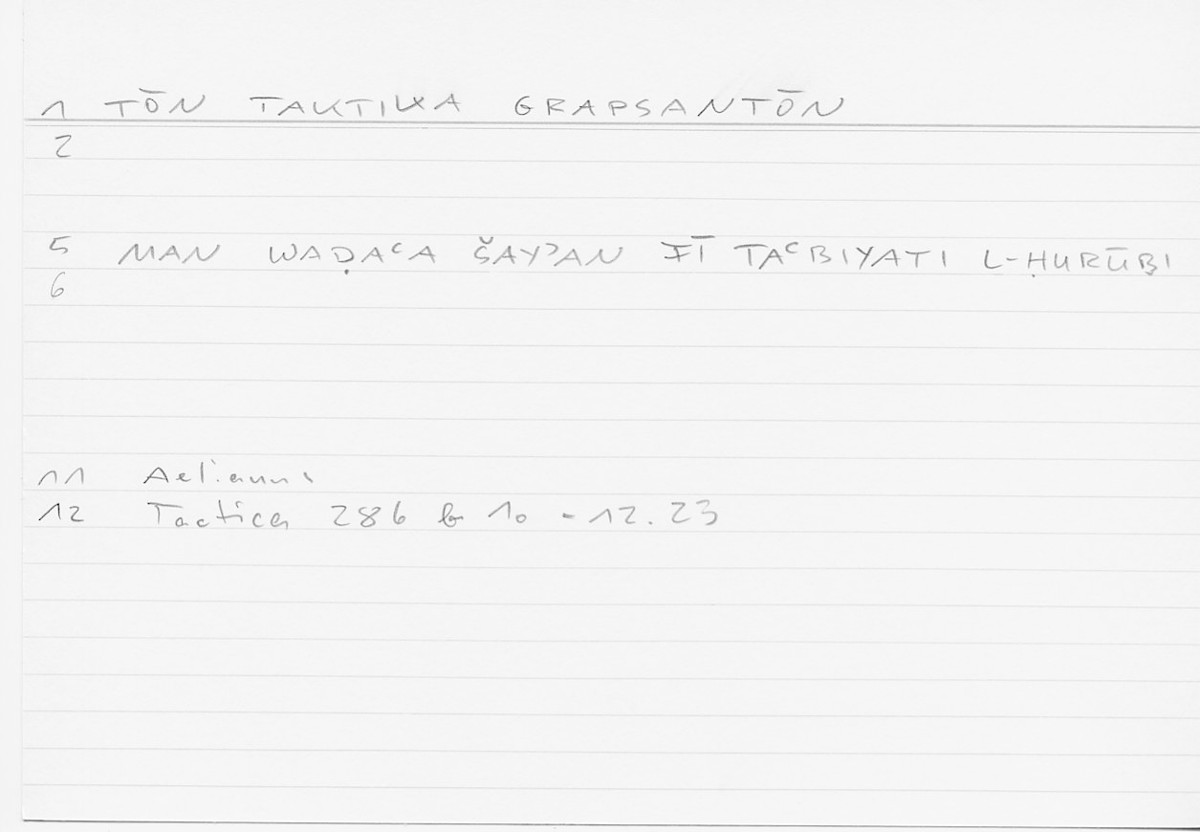 1 TŌN TAKTIKA GRAPSANTŌN
2
5 MAN WAḌAʿA ŠAYʾAN FĪ TAʿBIYATI L-ḤURŪBI
6
11 Aelianus
12 Tactica 286 b 10 - 12.23